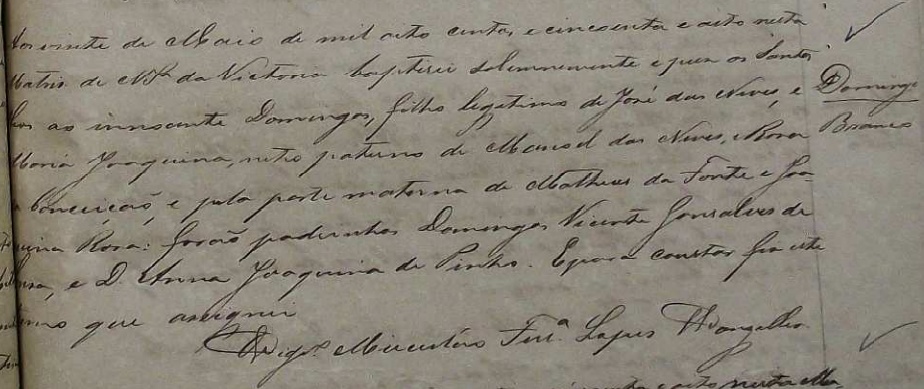 Aos vinte de Maio de mil oito centos e cincoenta e oito nesta
Matriz de N. Sra. da Victoria baptizei solemnemente e puz os Santos
Oleos ao innocente Domingos, filho legitimo de José das Neves, e
Maria Joaquina, neto paterno de Manoel das Neves, e Rosa
Conceicaõ, e pela parte materna de Matheus da Fonte e Joa-
quina Rosa: foraõ padrinhos Domingos Vicente Gonsalves de
e D. Anna Joaquina de Pinho. E para constar fiz este
que assignei
Vigro. Ferra. Lopes
Domingos
Branco